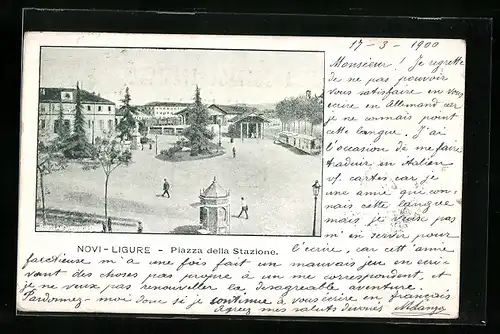 17-3-1900
Monsieur! Je regrette
de ne pas pouvoir
vous satisfaire en vous
écrire en Allemand car
je ne connais point
cette langue. J'ai
l'occasion de me faire
traduir en italien
vos cartes car je
une amie qui con-
nais cette langue
mais je
m'en servir pour
l'écrire, car cett'amie
NOVI-LIGURE - Piazza della Stazione.
facetieuse m'a une fois fait un mauvais jeu en ecri-
vant des choses pas propre à un me correspondent, et
je ne veux pas renouveller la disagreable aventure.
Pardonnez-moi donc si je continue à vous écrire en français
Agrez mes saluts